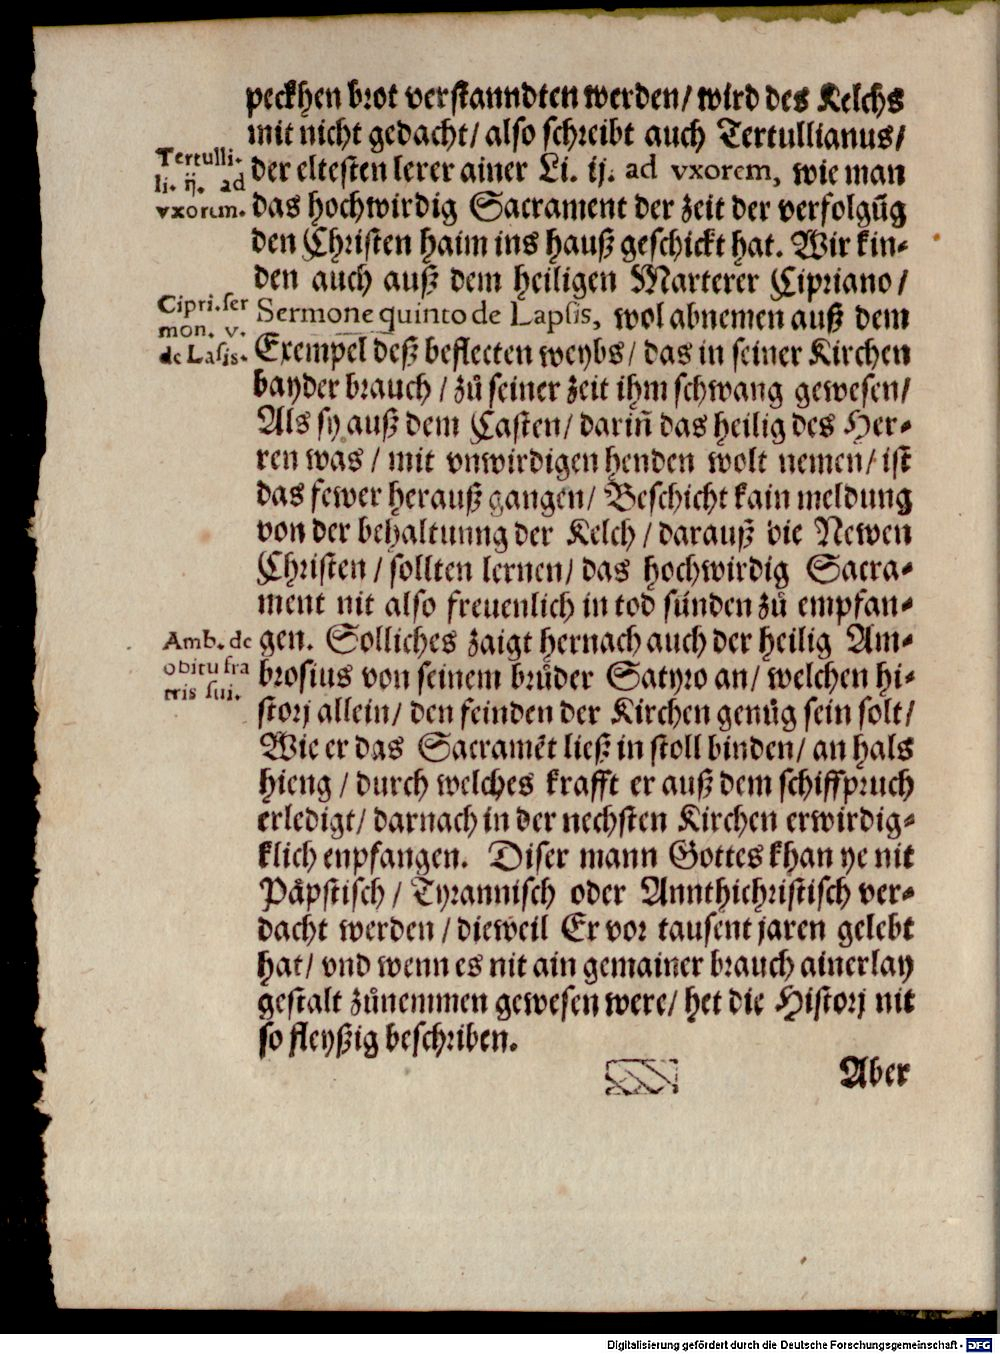 peckhen brot verstanndten werden/ wird des Kelchs
mit nicht gedacht/ also schreibt auch Tertullianus/
Tertulli.
li. ij. ad
vxorem.
der eltesten lerer ainer Li. ij. ad vxorem, wie man
das hochwirdig Sacrament der zeit der verfolgũg
den Christen haim ins hauß geschickt hat. Wir kin-
den auch auß dem heiligen Marterer Cipriano/
Cipri.ser
mon. v.
de Lasis.
Sermone quinto de Lapsis, wol abnemen auß dem
Exempel deß beflecten weybs/ das in seiner Kirchen
bayder brauch/ zů seiner zeit ihm schwang gewesen/
Als sy auß dem Casten/ dariñ das heilig des Her-
ren was/ mit vnwirdigen henden wolt nemen/ ist
das fewer herauß gangen/ Beschicht kain meldung
von der behaltunng der Kelch/ darauß die Newen
Christen/ sollten lernen/ das hochwirdig Sacra-
ment nit also freuenlich in tod sünden zů empfan-
Amb. de
obitu fra
tris sui.
gen. Solliches zaigt hernach auch der heilig Am-
brosius von seinem brůder Satyro an/ welchen hi-
storj allein/ den feinden der Kirchen genůg sein solt/
Wie er das Sacramẽt ließ in stoll binden/ an hals
hieng/ durch welches krafft er auß dem schiffpruch
erledigt/ darnach in der nechsten Kirchen erwirdig-
klich enpfangen. Diser mann Gottes khan ye nit
Päpstisch/ Tyrannisch oder Annthichristisch ver-
dacht werden/ dieweil Er vor tausent jaren gelebt
hat/ vnd wenn es nit ain gemainer brauch ainerlay
gestalt zůnemmen gewesen were/ het die Historj nit
so fleyßig beschriben.
Aber
Digitalisierung gefördert durch die Deutsche Forschungsgemeinschaft - DFG